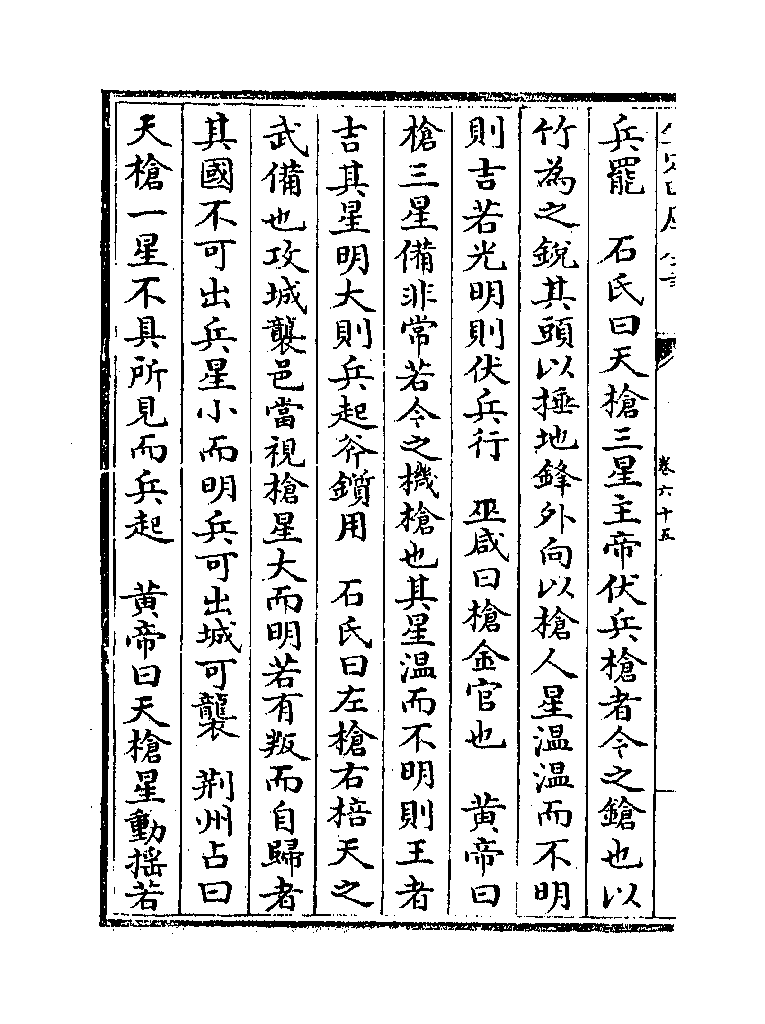 兵罷　石氏曰天槍三星主帝伏兵槍者今之鎗也以
竹為之銳其頭以捶地鋒外向以槍人星溫溫而不明
則吉若光明則伏兵行　巫咸曰槍金官也　黄帝曰
槍三星備非常若今之機槍也其星溫而不明則王者
吉其星明大則兵起斧鑕用　石氏曰左槍右棓天之
武備也攻城襲邑當視槍星大而明若有叛而自歸者
其國不可出兵星小而明兵可出城可襲　荆州占曰
天槍一星不具所見而兵起　黄帝曰天槍星動揺若
卷六十五